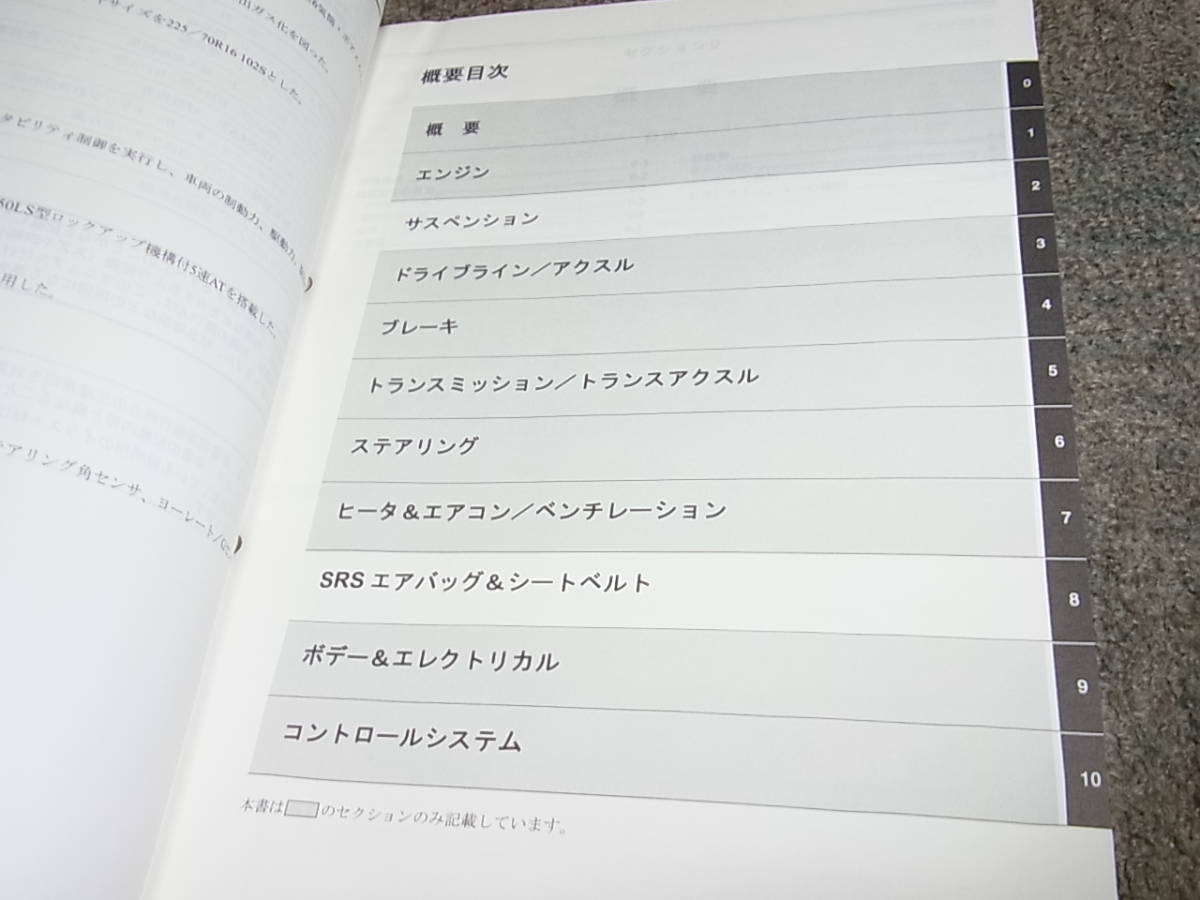 出ガス化を図った。
イヤサイズを225／70R16 102Sとした。
タビリティ制御を実行し、車両の制動力、駆動力、
50LS型ロックアップ機構付5速ATを搭載した。
用した。
アリング角センサ、ヨーレート/G
概要目次
概　要
0
エンジン
1
サスペンション
2
ドライブライン／アクスル
3
ブレーキ
4
トランスミッション／トランスアクスル
5
ステアリング
6
ヒータ＆エアコン／ベンチレーション
7
SRS エアバッグ＆シートベルト
8
ボデー＆エレクトリカル
9
コントロールシステム
10
本書は のセクションのみ記載しています。